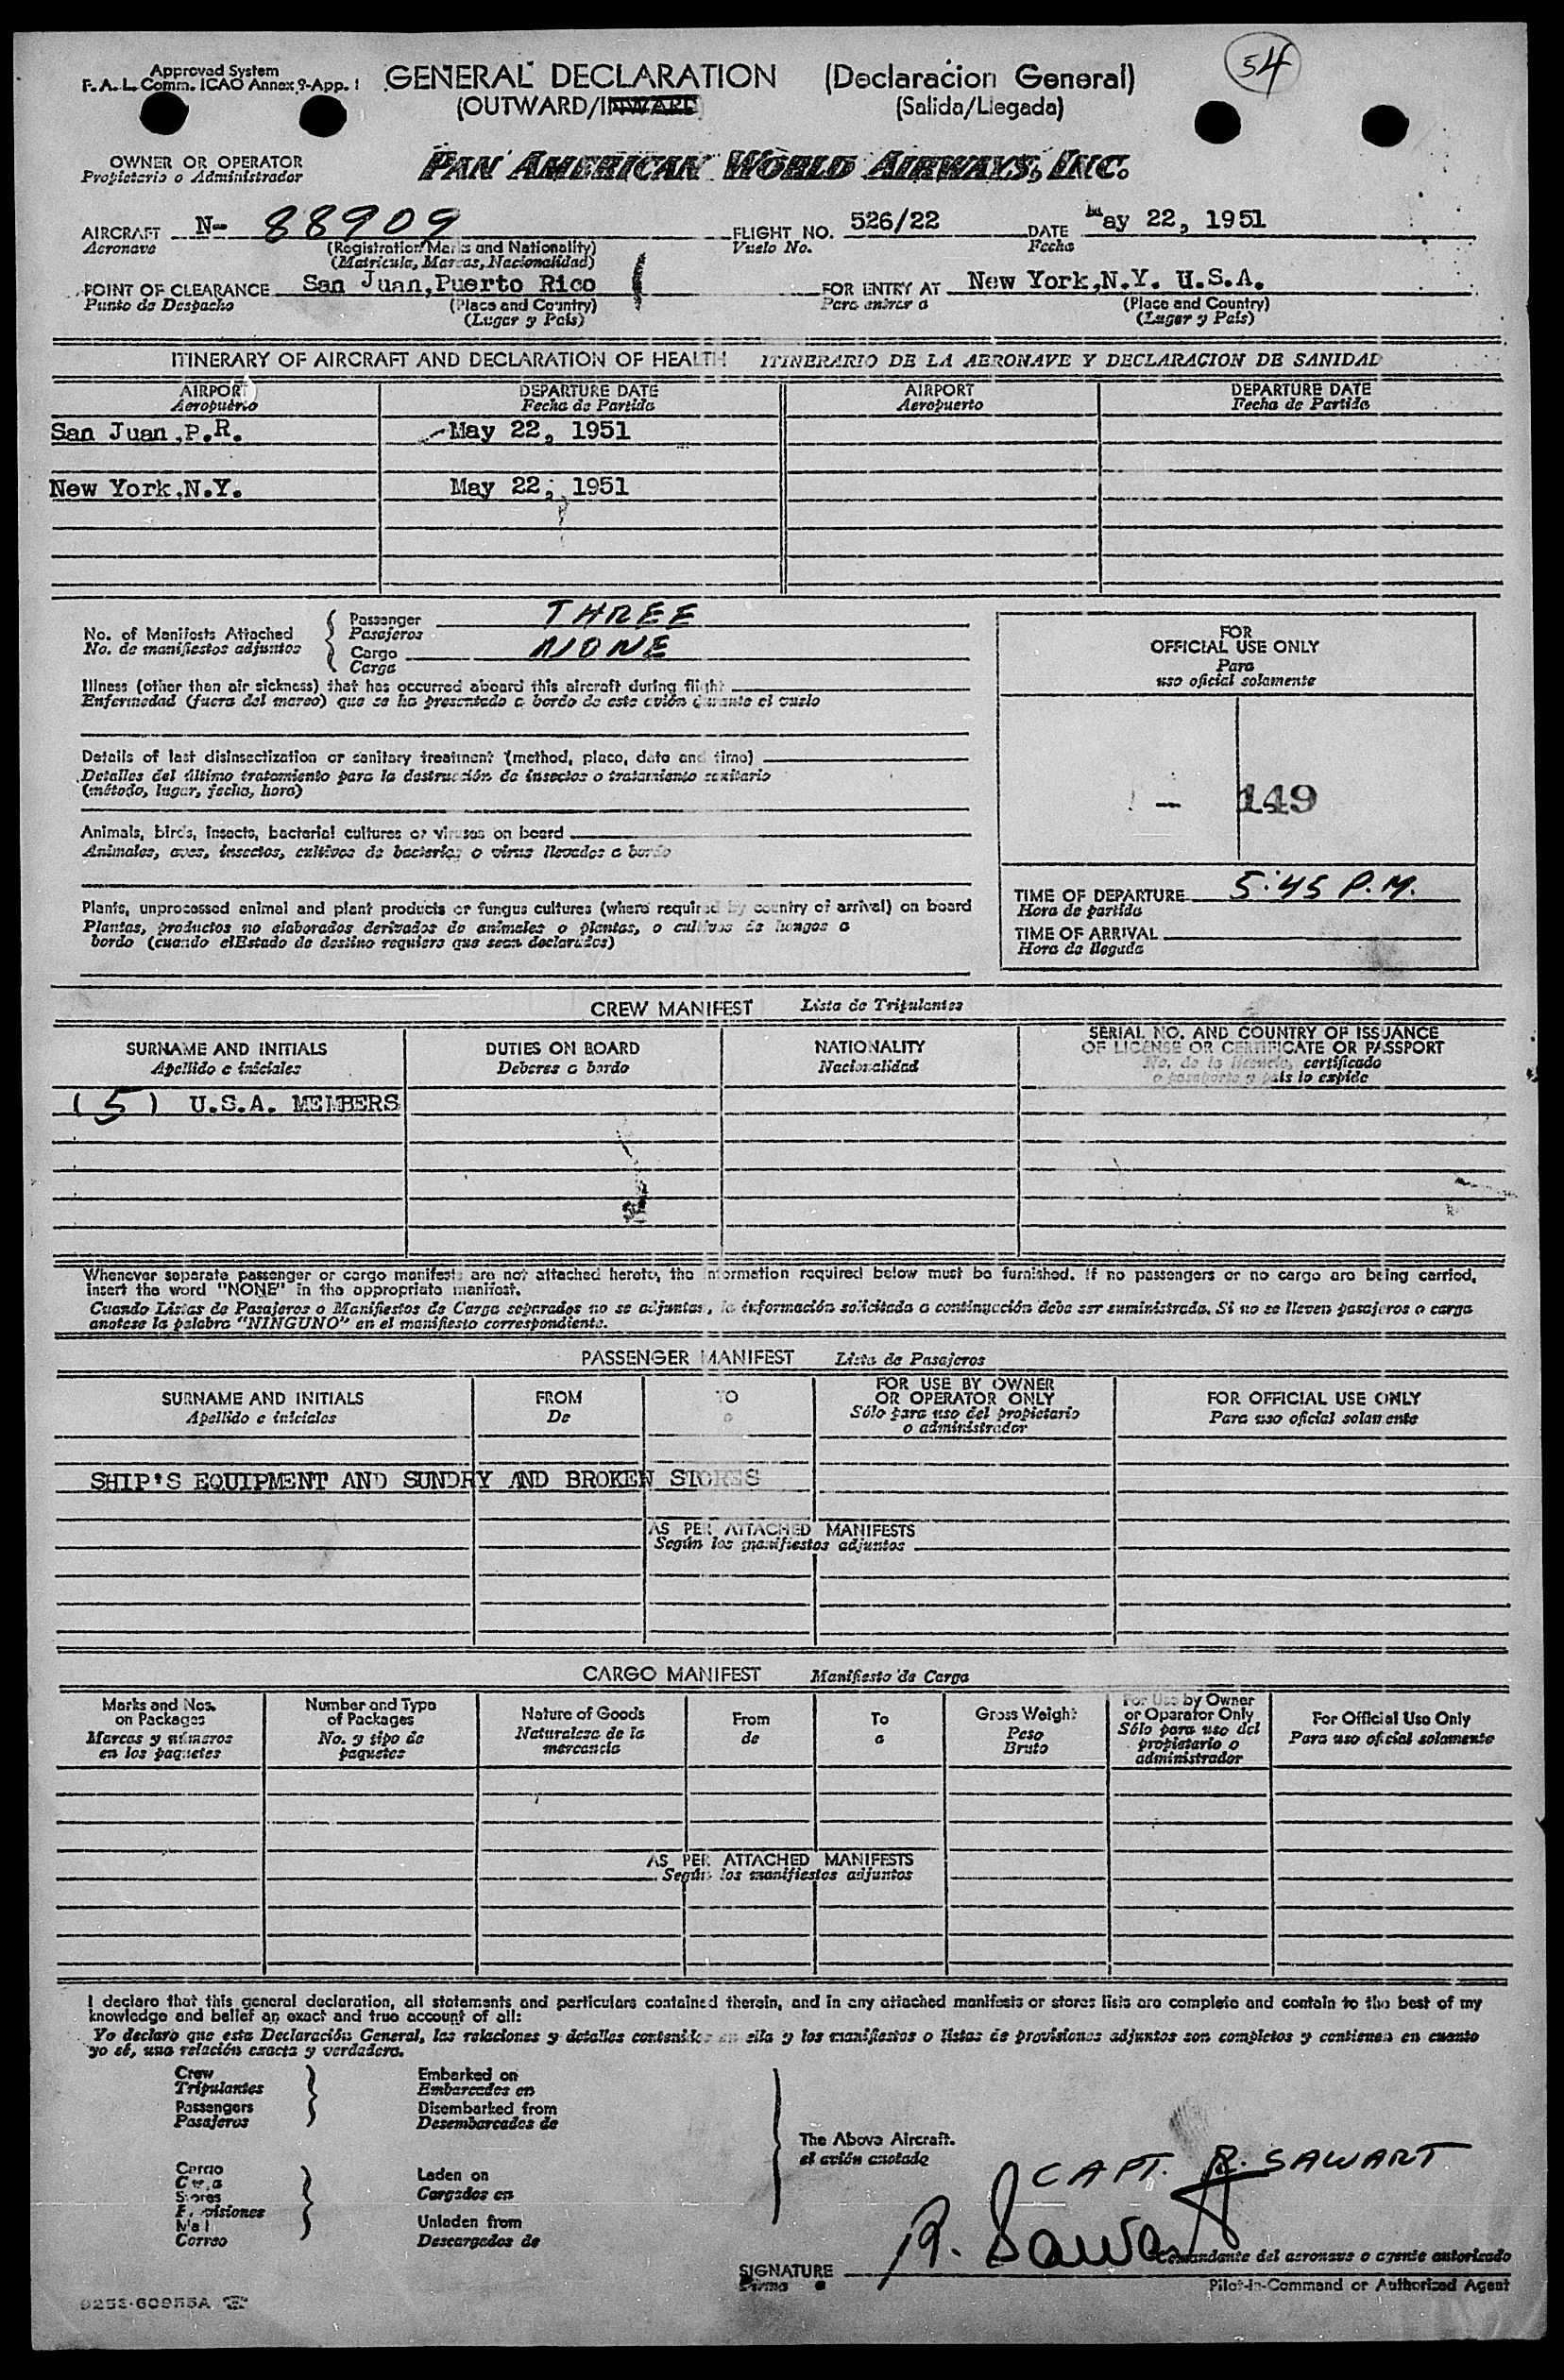 Approved System
F.A.L. Comm. ICAO Annex 9-App. 1
GENERAL DECLARATION (Declaración General)
54
(OUTWARD/INWARD) (Salida/Llegada)
OWNER OR OPERATOR
Propietario o Administrador
PAN AMERICAN WORLD AIRWAYS, INC.
AIRCRAFT N- 88909 FLIGHT NO. 526/22 DATE May 22, 1951
Aeronave (Registration Marks and Nationality) Vuelo No. Fecha
(Matricula, Marcas, Nacionalidad)
POINT OF CLEARANCE San Juan, Puerto Rico FOR ENTRY AT New York, N.Y. U.S.A.
Punto de Despacho (Place and Country) Para entrar a (Place and Country)
(Lugar y País) (Lugar y País)
ITINERARY OF AIRCRAFT AND DECLARATION OF HEALTH ITINERARIO DE LA AERONAVE Y DECLARACION DE SANIDAD
AIRPORT DEPARTURE DATE AIRPORT DEPARTURE DATE
Aeropuerto Fecha de Partida Aeropuerto Fecha de Partida
San Juan, P.R. May 22, 1951
New York, N.Y. May 22, 1951
No. of Manifests Attached
No. de manifiestos adjuntos
Passenger THREE
Pasajeros
Cargo NONE
Carga
Illness (other than air sickness) that has occurred aboard this aircraft during flight
Enfermedad (fuera del mareo) que se ha presentado a bordo de este avión durante el vuelo
Details of last disinsectization or sanitary treatment (method, place, date and time)
Detalles del último tratamiento para la destrucción de insectos o tratamiento sanitario
(método, lugar, fecha, hora)
Animals, birds, insects, bacterial cultures or viruses on board
Animales, aves, insectos, cultivos de bacterias o virus llevados a bordo
Plants, unprocessed animal and plant products or fungus cultures (where required by country of arrival) on board
Plantas, productos no elaborados derivados de animales o plantas, o cultivos de hongos a
bordo (cuando elEstado de destino requiera que sean declarados)
FOR
OFFICIAL USE ONLY
Para
uso oficial solamente
149
TIME OF DEPARTURE 5:45 P.M.
Hora de partida
TIME OF ARRIVAL
Hora de llegada
CREW MANIFEST Lista de Tripulantes
SURNAME AND INITIALS DUTIES ON BOARD NATIONALITY SERIAL NO. AND COUNTRY OF ISSUANCE
OF LICENSE OR CERTIFICATE OR PASSPORT
Apellido e iniciales Deberes a bordo Nacionalidad No. de la licencia, certificado
o pasaporte y país lo expide
(5) U.S.A. MEMBERS
Whenever separate passenger or cargo manifests are not attached hereto, the information required below must be furnished. If no passengers or no cargo are being carried,
insert the word "NONE" in the appropriate manifest.
Cuando Listas de Pasajeros o Manifiestos de Carga separados no se adjuntan, la información solicitada a continuación debe ser suministrada. Si no se lleven pasajeros o carga
anotese la palabra "NINGUNO" en el manifiesto correspondiente.
PASSENGER MANIFEST Lista de Pasajeros
SURNAME AND INITIALS FROM TO FOR USE BY OWNER
OR OPERATOR ONLY FOR OFFICIAL USE ONLY
Apellido e iniciales De a Sólo para uso del propietario
o administrador Para uso oficial solamente
SHIP'S EQUIPMENT AND SUNDRY AND BROKEN STORES
AS PER ATTACHED MANIFESTS
Según los manifiestos adjuntos
CARGO MANIFEST Manifiesto de Carga
Marks and Nos.
on Packages
Marcas y números
en los paquetes
Number and Type
of Packages
No. y tipo de
paquetes
Nature of Goods
Naturaleza de la
mercancía
From
de
To
a
Gross Weight
Peso
Bruto
For Use by Owner
or Operator Only
Sólo para uso del
propietario o
administrador
For Official Use Only
Para uso oficial solamente
AS PER ATTACHED MANIFESTS
Según los manifiestos adjuntos
I declare that this general declaration, all statements and particulars contained therein, and in any attached manifests or stores lists are complete and contain to the best of my
knowledge and belief an exact and true account of all:
Yo declaro que esta Declaración General, las relaciones y detalles contenidos en ella y los manifiestos o listas de provisiones adjuntos son completos y contienen en cuanto
yo sé, una relación exacta y verdadera.
Crew
Tripulantes
Passengers
Pasajeros
Embarked on
Embarcados en
Disembarked from
Desembarcados de
Cargo
Carga
Stores
Provisiones
Mail
Correo
Laden on
Cargados en
Unladen from
Descargados de
The Above Aircraft.
el avión anotado
CAPT. R. SAWART
R. Sawart
SIGNATURE
Firma
Comandante del aeronave o agente autorizado
Pilot-in-Command or Authorized Agent